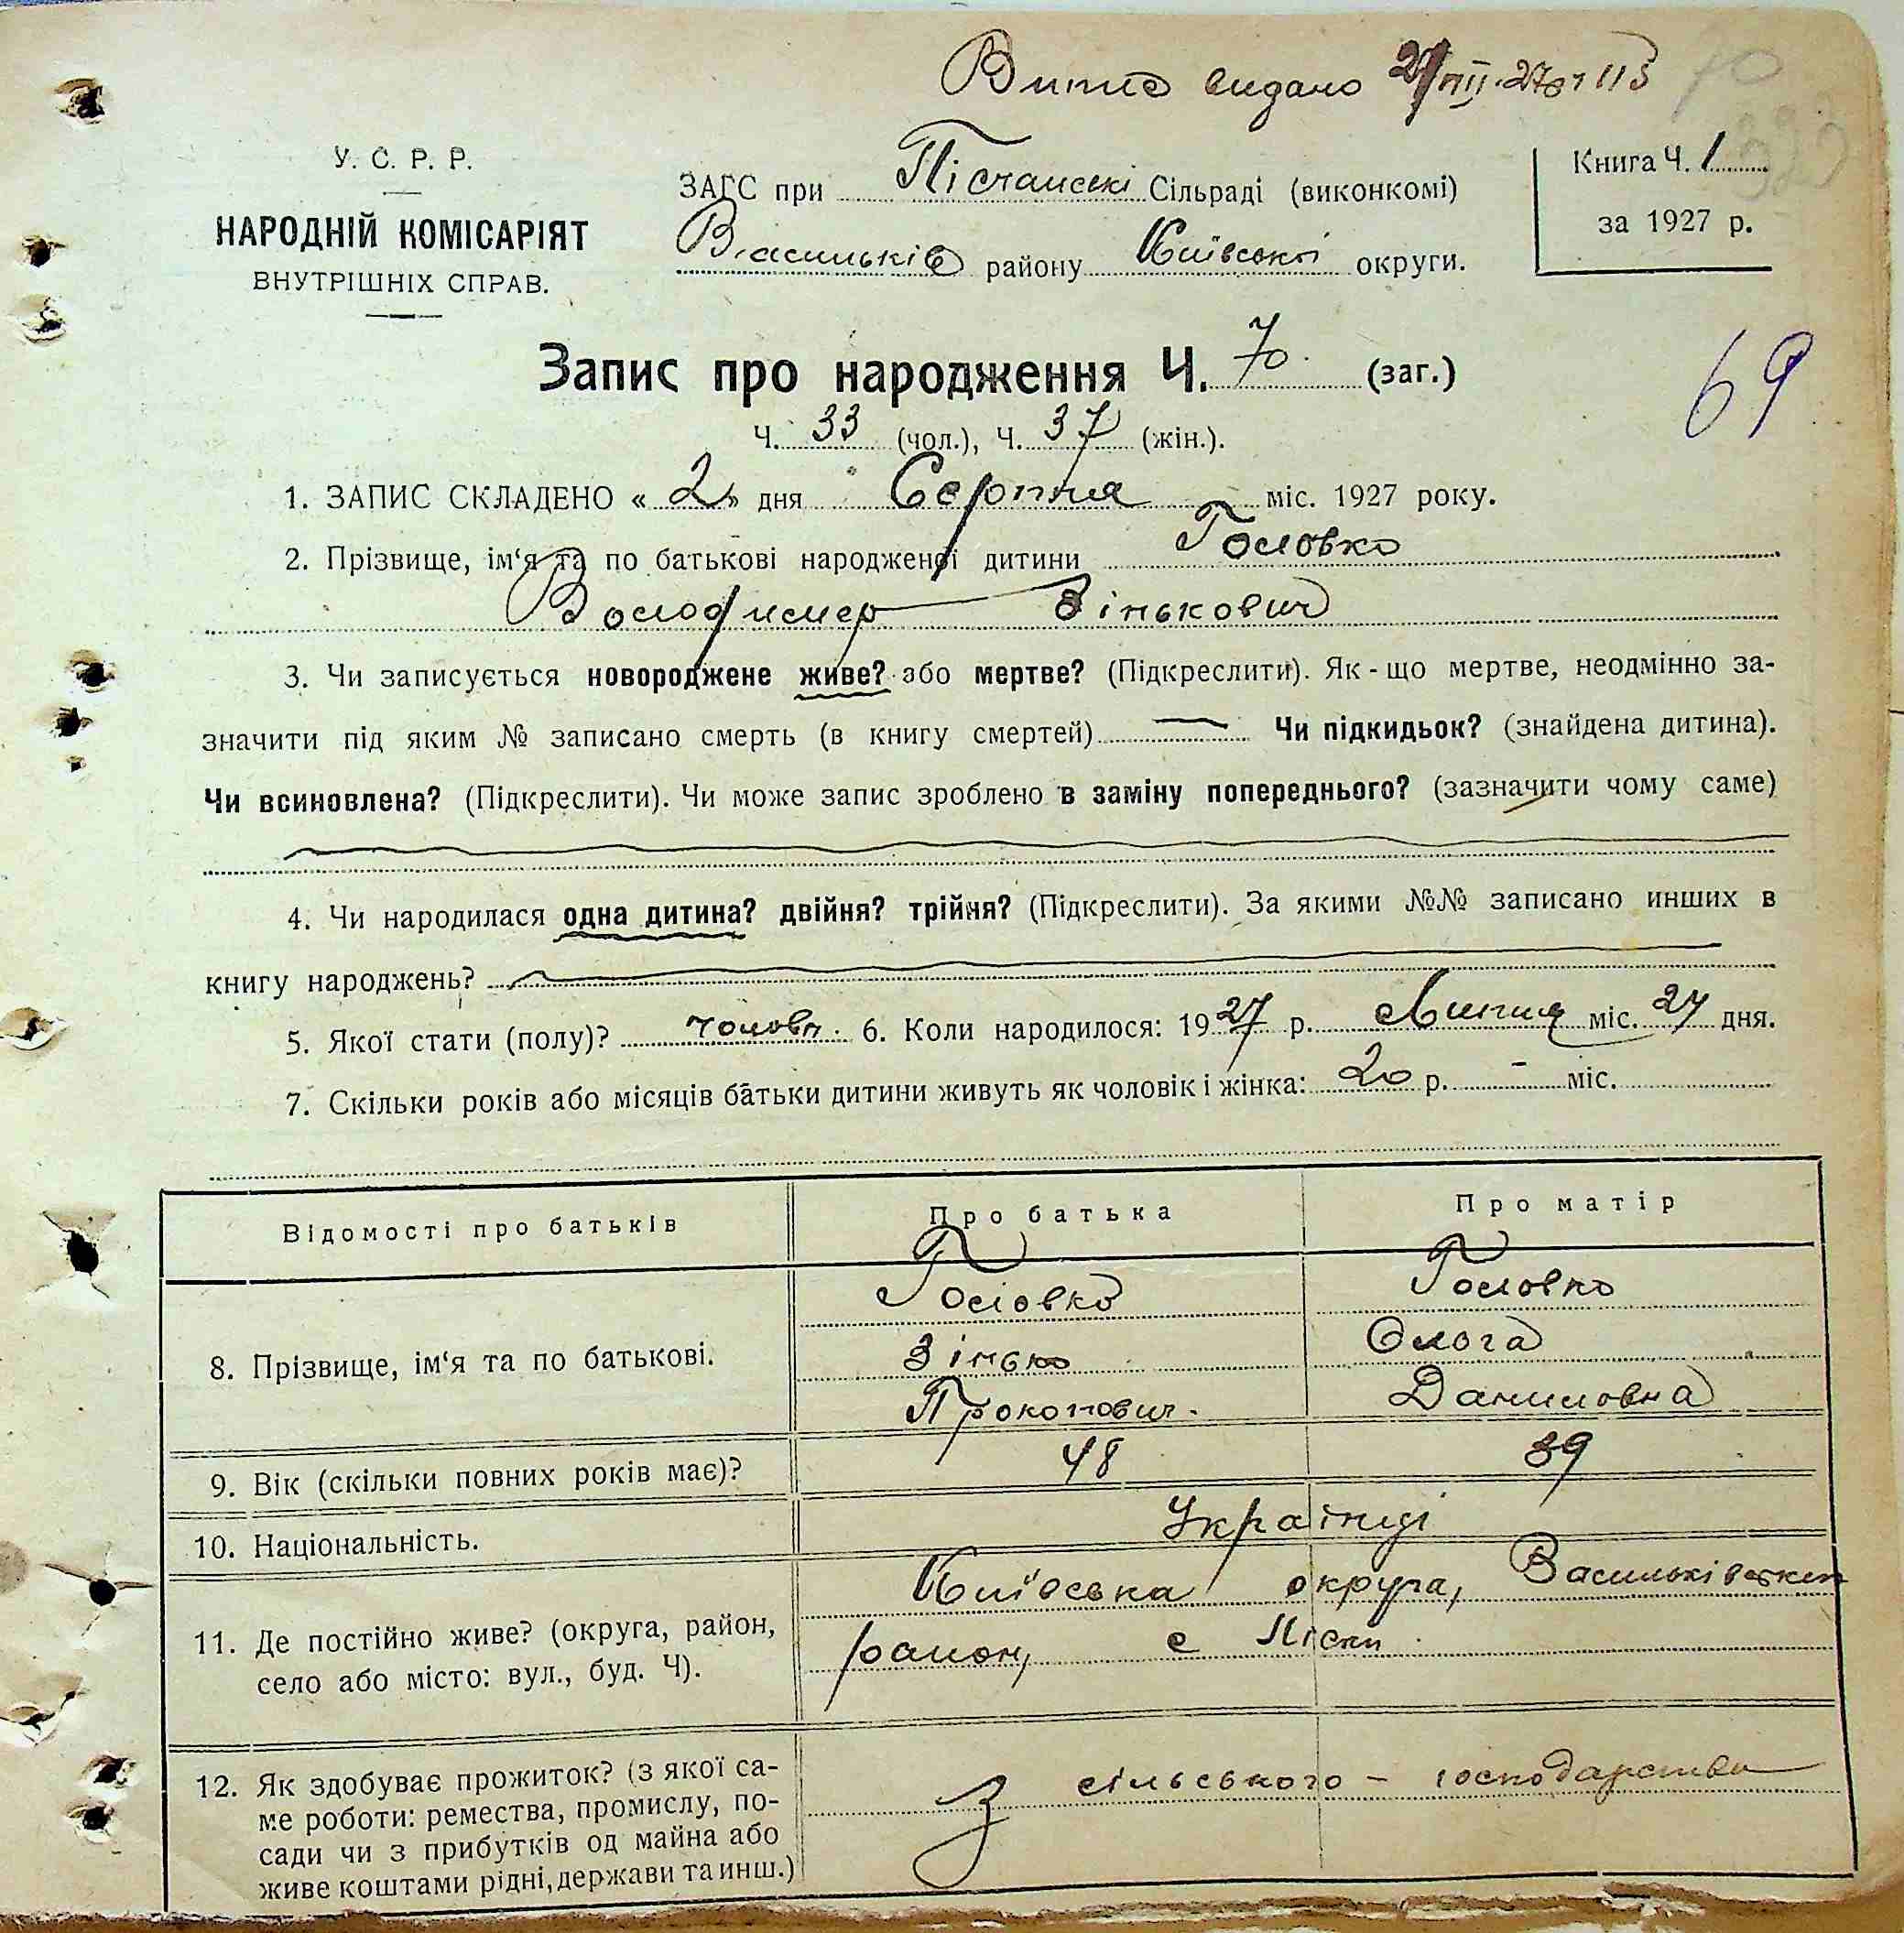 Випис видано
У. С. Р. Р.
НАРОДНІЙ КОМІСАРІЯТ
ВНУТРІШНІХ СПРАВ.
ЗАГС при Пісчанські Сільраді (виконкомі)
Васильків району Київської округи.
Книга Ч. 1
за 1927 р.
Запис про народження Ч. 70. (заг.)
69
Ч. 33 (чол.), Ч. 37 (жін.).
1. ЗАПИС СКЛАДЕНО « 2 » дня Серпня міс. 1927 року.
2. Прізвище, ім‘я та по батькові народженої дитини Головко
Володимер Зінькович
3. Чи записується новороджене живе? або мертве? (Підкреслити). Як - що мертве, неодмінно за-
значити під яким № записано смерть (в книгу смертей) — Чи підкидьок? (знайдена дитина).
Чи всиновлена? (Підкреслити). Чи може запис зроблено в заміну попереднього? (зазначити чому саме)
4. Чи народилася одна дитина? двійня? трійня? (Підкреслити). За якими №№ записано инших в
книгу народжень?
5. Якої стати (полу)? чолов. 6. Коли народилося: 1927 р. Липня міс. 27 дня.
7. Скільки років або місяців батьки дитини живуть як чоловік і жінка: 20 р. - міс.
Відомості про батьків Про батька Про матір
8. Прізвище, ім‘я та по батькові.
Головко Головко
Зінько Ольга
Прокопович. Даниловна
9. Вік (скільки повних років має)? 48 39
10. Національність. Українці
11. Де постійно живе? (округа, район,
село або місто: вул., буд. Ч).
Київська округа, Васильківський
район, с Піски
12. Як здобуває прожиток? (з якої са-
ме роботи: ремества, промислу, по-
сади чи з прибутків од майна або
живе коштами рідні, держави та инш.)
З сільського - господарства